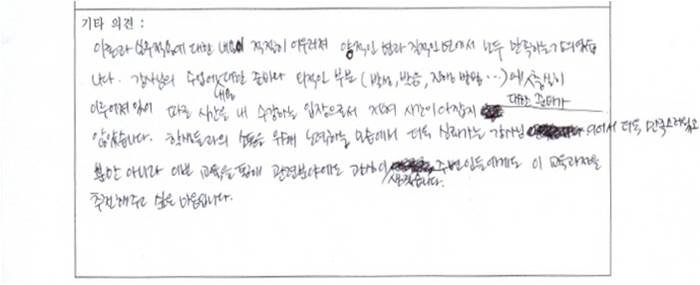 기타 의견 :
이론과 실무적용에 대한 내용이 적절히 어우러져 양적인 면과 질적인 면에서 모두 만족하는 강의였습
니다. 강사님의 수업에 대한 준비와 외적인 부분 ( 발성, 발음, 진행 방법 ...) 에 충실히
내용
대한 준비가
이루어져 있어 따로 시간을 내 수강하는 입장으로서 전혀 시간이 아깝지
않았습니다. 학생들과의 소통을 위해 노력하는 모습에서 더욱 신뢰가는 강사님 이어서 더욱 만족스러웠고
뿐만 아니라 이번 교육을 통해 관련분야에도 관심이 주변인들에게도 이 교육과정을
생겼습니다.
추천해주고 싶은 마음입니다.